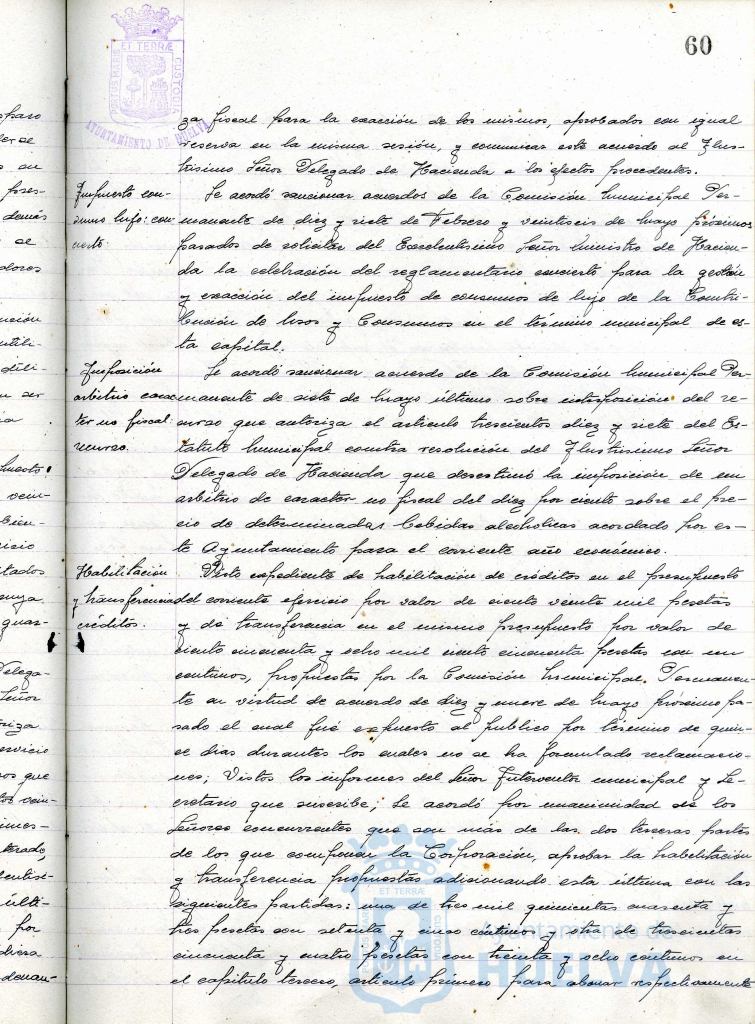 60
PORTUS MARIS ET TERRÆ CUSTODIA
AYUNTAMIENTO DE HUELVA
za fiscal para la exacción de los mismos, aprobados con igual
reserva en la misma sesión, y comunicar este acuerdo al Ilus-
trísimo Señor Delegado de Hacienda a los efectos procedentes.
Impuesto con-
sumo lujo: con-
cierto.
Se acordó sancionar acuerdos de la Comisión Municipal Per-
manente de diez y siete de Febrero y veintiseis de Mayo próximos
pasados de solicitar del Excelentísimo Señor Ministro de Hacien-
da la celebración del reglamentario concierto para la gestión
y exacción del impuesto de consumos de lujo de la Contri-
bución de Usos y Consumos en el término municipal de es-
ta capital.
Imposición
arbitrio carac-
ter no fiscal
recurso.
Se acordó sancionar acuerdo de la Comisión Municipal Per-
manente de siete de Mayo último sobre interposición del re-
curso que autoriza el artículo trescientos diez y siete del Es-
tatuto Municipal contra resolución del Ilustrísimo Señor
Delegado de Hacienda que desestimó la imposición de un
arbitrio de caracter no fiscal del diez por ciento sobre el pre-
cio de determinadas bebidas alcoholicas acordado por es-
te Ayuntamiento para el corriente año económico.
Habilitación
y transferencia
créditos.
Visto expediente de habilitación de créditos en el presupuesto
del corriente ejercicio por valor de ciento veinte mil pesetas
y de transferencia en el mismo presupuesto por valor de
ciento cincuenta y ocho mil ciento cincuenta pesetas con un
centimos, propuestas por la Comisión Municipal Permanen-
te en virtud de acuerdo de diez y nueve de Mayo próximo pa-
sado el cual fué expuesto al publico por término de quin-
ce dias durantes los cuales no se ha formulado reclamacio-
nes; Vistos los informes del Señor Interventor municipal y Se-
cretario que suscribe; Se acordó por unanimidad de los
Señores concurrentes que son más de las dos terceras partes
de los que componen la Corporación, aprobar la habilitación
y transferencia propuestas adicionando esta última con las
siguientes partidas: una de tres mil quinientas cuarenta y
tres pesetas con setenta y cinco céntimos y otra de trescientas
cincuenta y cuatro pesetas con treinta y ocho céntimos en
el capítulo tercero, artículo primero para abonar respectivamente
Ayuntamiento de
HUELVA